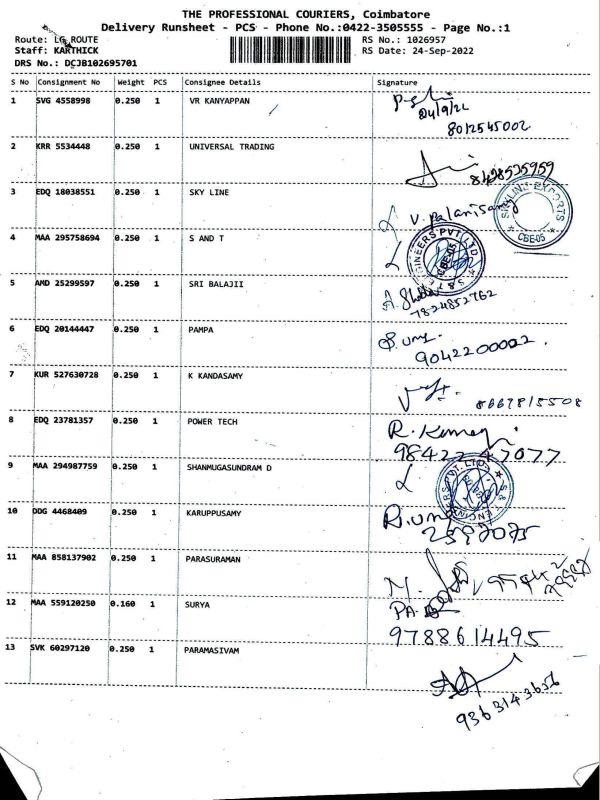 THE PROFESSIONAL COURIERS, Coimbatore
Delivery Runsheet - PCS - Phone No.:0422-3505555 - Page No.:1
Route: LG ROUTE
RS No.: 1026957
Staff: KARTHICK
RS Date: 24-Sep-2022
DRS No.: DCJB102695701
S No Consignment No Weight PCS Consignee Details Signature
1 SVG 4558998 0.250 1 VR KANYAPPAN
24/9/22
8012545002
2 KRR 5534448 0.250 1 UNIVERSAL TRADING
8428535959
3 EDQ 18038551 0.250 1 SKY LINE
V. Palanisamy
SKYLINE EXPORTS
CBE-05
4 MAA 295758694 0.250 1 S AND T
S & T ENGINEERS PVT. LTD.
CBE-05
5 AMD 25299597 0.250 1 SRI BALAJII
7824852762
6 EDQ 20144447 0.250 1 PAMPA
9042200002.
7 KUR 527630728 0.250 1 K KANDASAMY
8667815508
8 EDQ 23781357 0.250 1 POWER TECH
98422 47077
9 MAA 294987759 0.250 1 SHANMUGASUNDRAM D
S & T ENGINEERS PVT. LTD.
10 DDG 4468409 0.250 1 KARUPPUSAMY
11 MAA 858137902 0.250 1 PARASURAMAN
12 MAA 559120250 0.160 1 SURYA
9788614495
13 SVK 60297120 0.250 1 PARAMASIVAM
9363143656